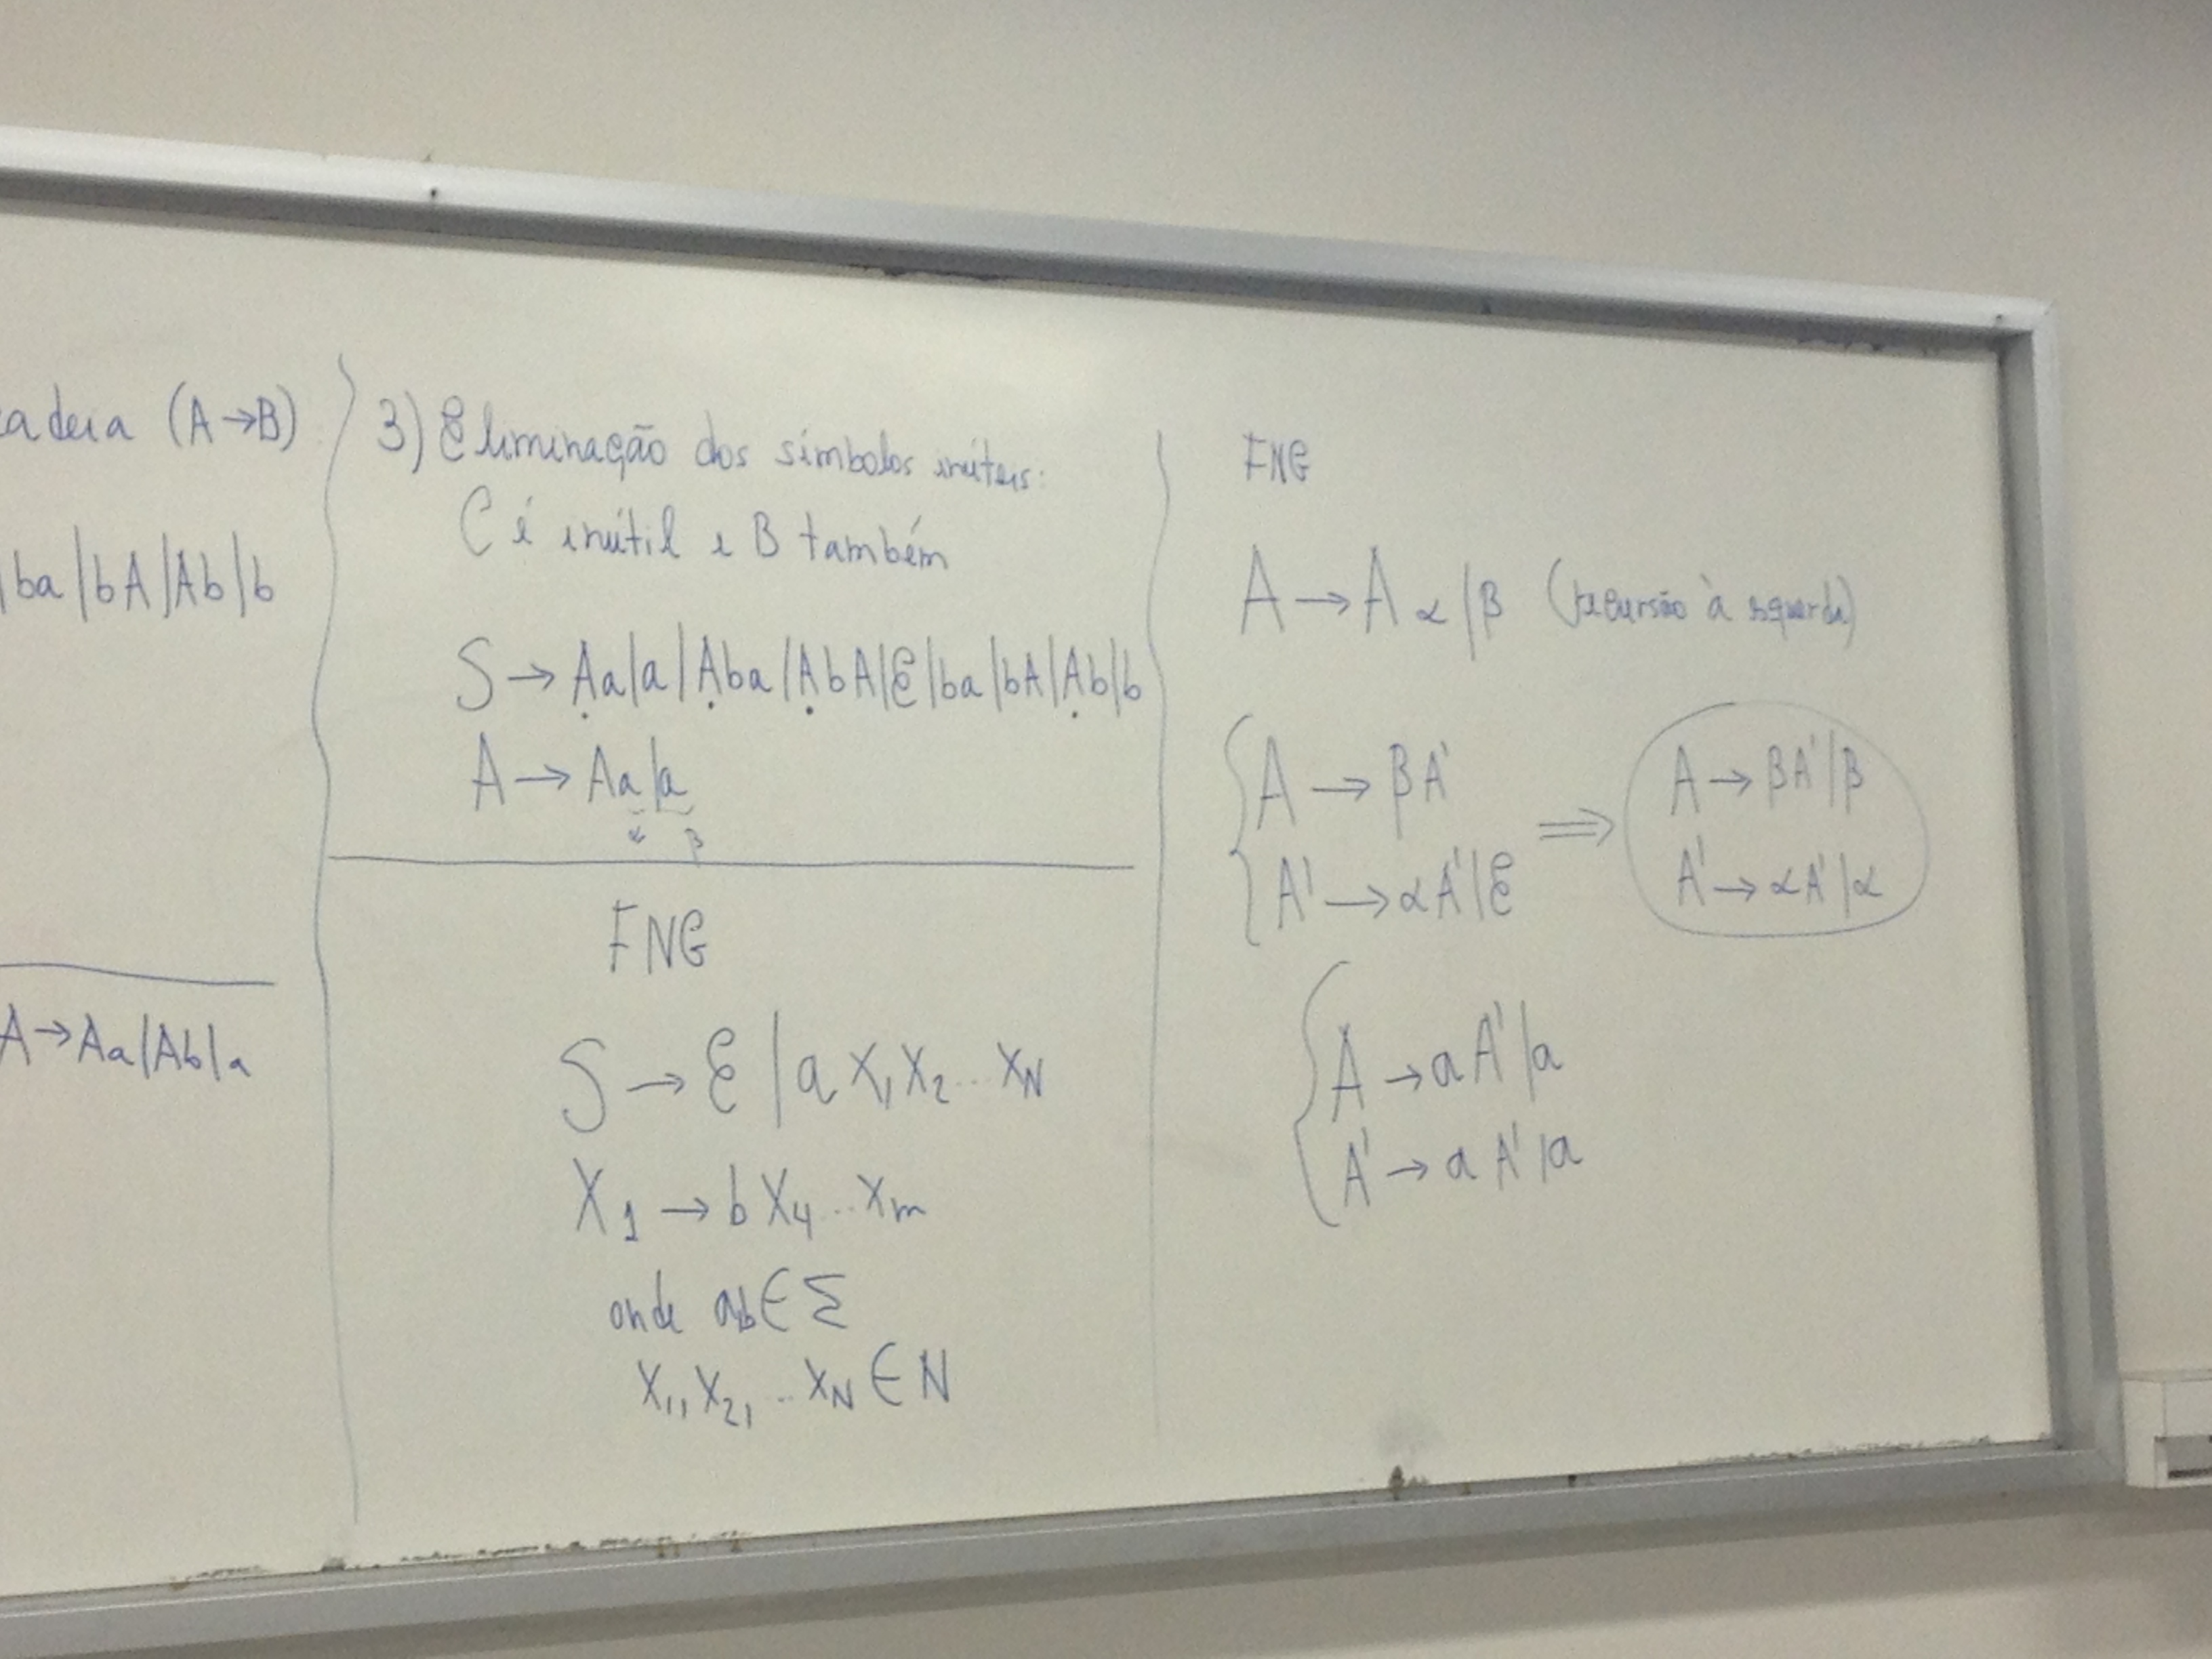 cadeia (A→B)
|ba|bA|Ab|b
A→Aa|Ab|a
3) Eliminação dos símbolos inúteis:
C é inútil e B também
S→Aa|a|Aba|AbA|ε|ba|bA|Ab|b
A→Aa|a
α β
FNG
S→ε|aX₁X₂...X_N
X₁→bX₄...X_m
onde a,b∈Σ
X₁,X₂,...X_N∈N
FNG
A→Aα|β (recursão à esquerda)
A→βA' ⟹ A→βA'|β
A'→αA'|ε A'→αA'|α
A→aA'|a
A'→aA'|a